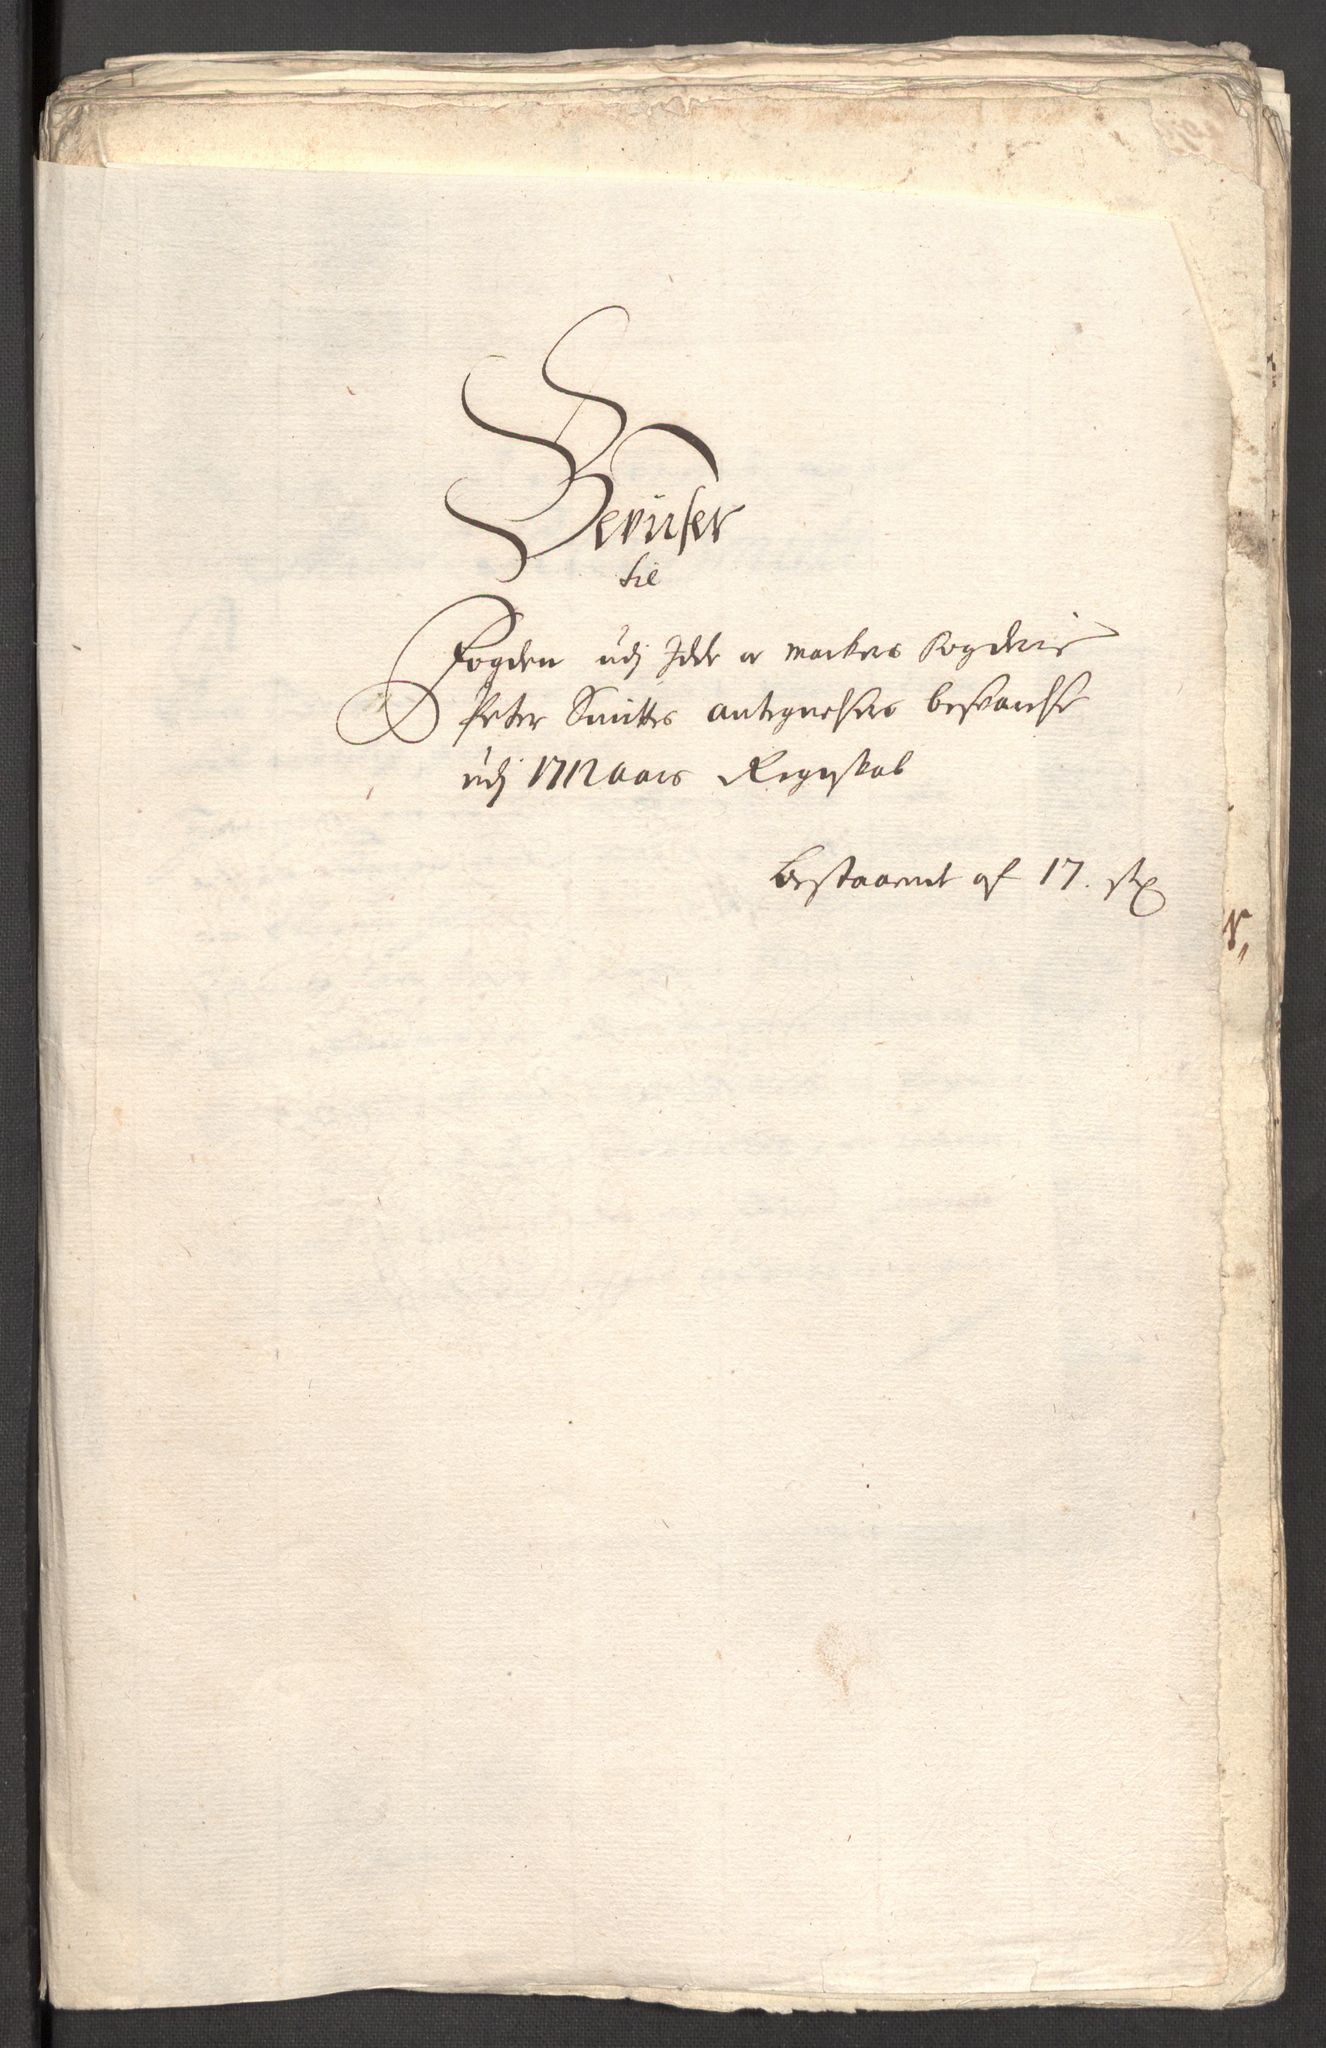 Beviser
til
Fogden udj Idde og Markers Fogderie
Peter Smittes antegnelsers besvarelse
udj 1712 aars Regnskab
bestaaende af 17. st